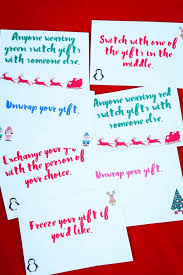 Anyone wearing
green switch gifts
with someone else.
Switch with one
of the gifts in
the middle.
Unwrap your gift.
Anyone wearing red
switch gifts with
someone else.
Exchange your gift
with the person of
your choice.
Unwrap your gift.
Freeze your gift if
you'd like.